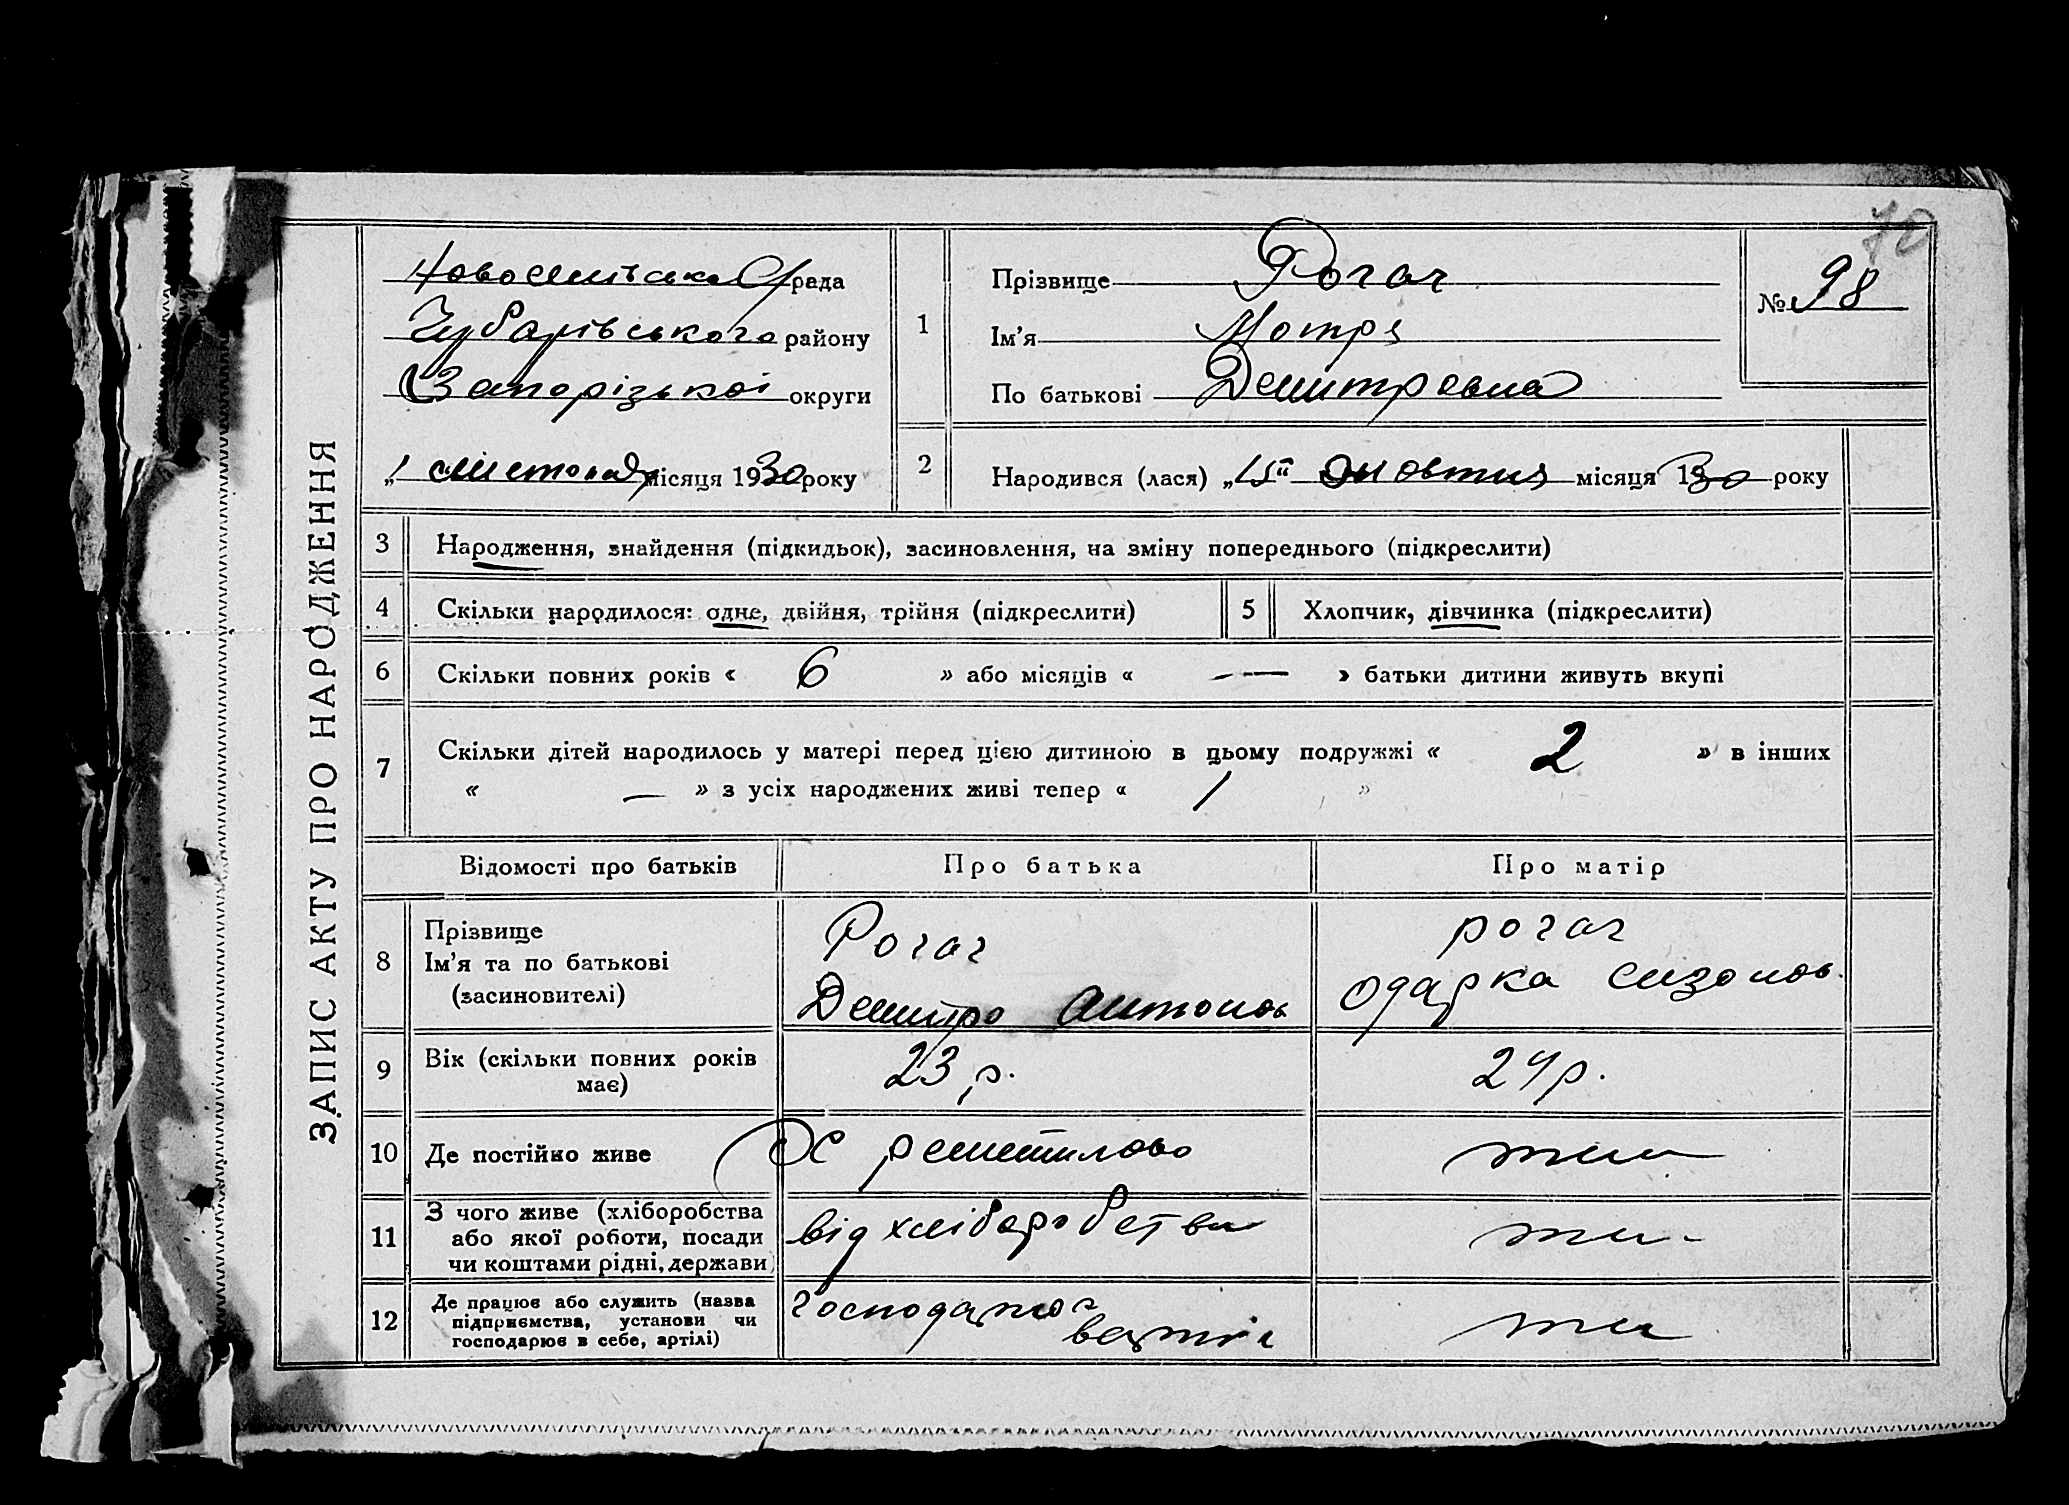 70
Новоселівська С/рада
Чубарівського району
Запорізької округи
„1 „листопад місяця 1930 року
ЗАПИС АКТУ ПРО НАРОДЖЕННЯ
1
Прізвище Рогач
Ім’я Мотря
По батькові Демитревна
№ 98
2
Народився (лася) „15“ жовтня місяця 1930 року
3 Народження, знайдення (підкидьок), засиновлення, на зміну попереднього (підкреслити)
4 Скільки народилося: одне, двійня, трійня (підкреслити)
5 Хлопчик, дівчинка (підкреслити)
6 Скільки повних років « 6 » або місяців « — » батьки дитини живуть вкупі
7 Скільки дітей народилось у матері перед цією дитиною в цьому подружжі « 2 » в інших
« — » з усіх народжених живі тепер « 1 »
Відомості про батьків Про батька Про матір
8 Прізвище
Ім’я та по батькові
(засиновителі)
Рогач
Демитро Антонов
рогач
одарка сизонов.
9 Вік (скільки повних років
має)
23 р.
24 р.
10 Де постійно живе
Х решетилово
11 З чого живе (хліборобства
або якої роботи, посади
чи коштами рідні, держави
від хліборобства
12 Де працює або служить (назва
підприємства, установи чи
господарює в себе, артілі)